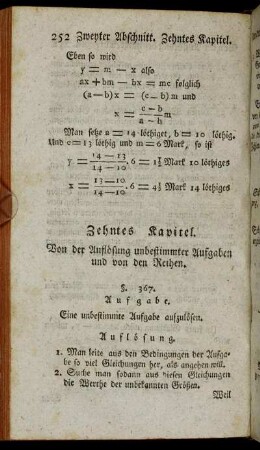 252 Zweyter Abschnitt. Zehntes Kapitel.
Eben so wird
y = m — x also
ax + bm — bx = mc folglich
(a—b)x = (c—b)m und
x = c—b/a—b m
Man setze a = 14 löthiget, b = 10 löthig.
Und c = 13 löthig und m = 6 Mark, so ist
y = 14—13/14—10 . 6 = 1½ Mark 10 löthiges
x = 13—10/14—10 . 6 = 4½ Mark 14 löthiges
Zehntes Kapitel.
Von der Auflösung unbestimmter Aufgaben
und von den Reihen.
§. 367.
Aufgabe.
Eine unbestimmte Aufgabe aufzulösen.
Auflösung.
1. Man leite aus den Bedingungen der Aufga-
be so viel Gleichungen her, als angehen will.
2. Suche man sodann aus diesen Gleichungen
die Werthe der unbekannten Größen.
Weil